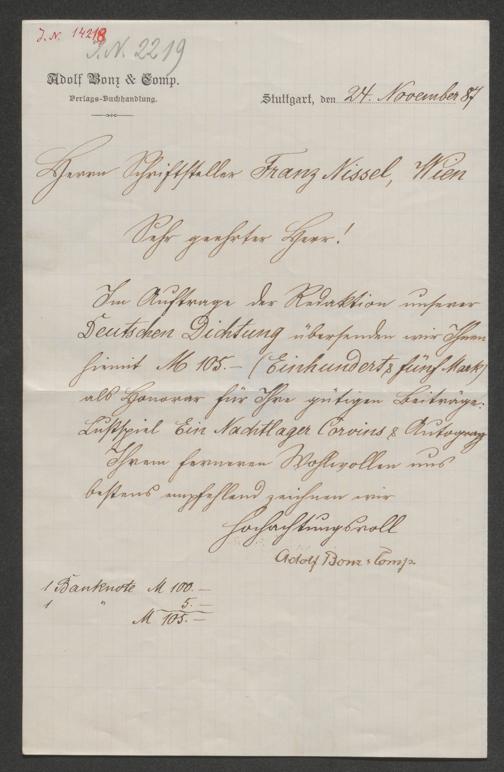 J. N. 14218
J. N. 2219
Adolf Bonz & Comp.
Verlags-Buchhandlung.
Stuttgart, den 24. November 87
Herrn Schriftsteller Franz Nissel, Wien
Sehr geehrter Herr!
Im Auftrage der Redaktion unserer
Deutschen Dichtung übersenden wir Ihnen
hiemit M 105.– (Einhundert & fünf Mark)
als Honorar für Ihre gütigen Beiträge:
Lustspiel Ein Nachtlager Corvins & Autogray
Ihrem ferneren Wohlwollen uns
bestens empfehlend zeichnen wir
Hochachtungsvoll
Adolf Bonz & Comp.
1 Banknote M 100.–
1 " 5.–
M 105.–